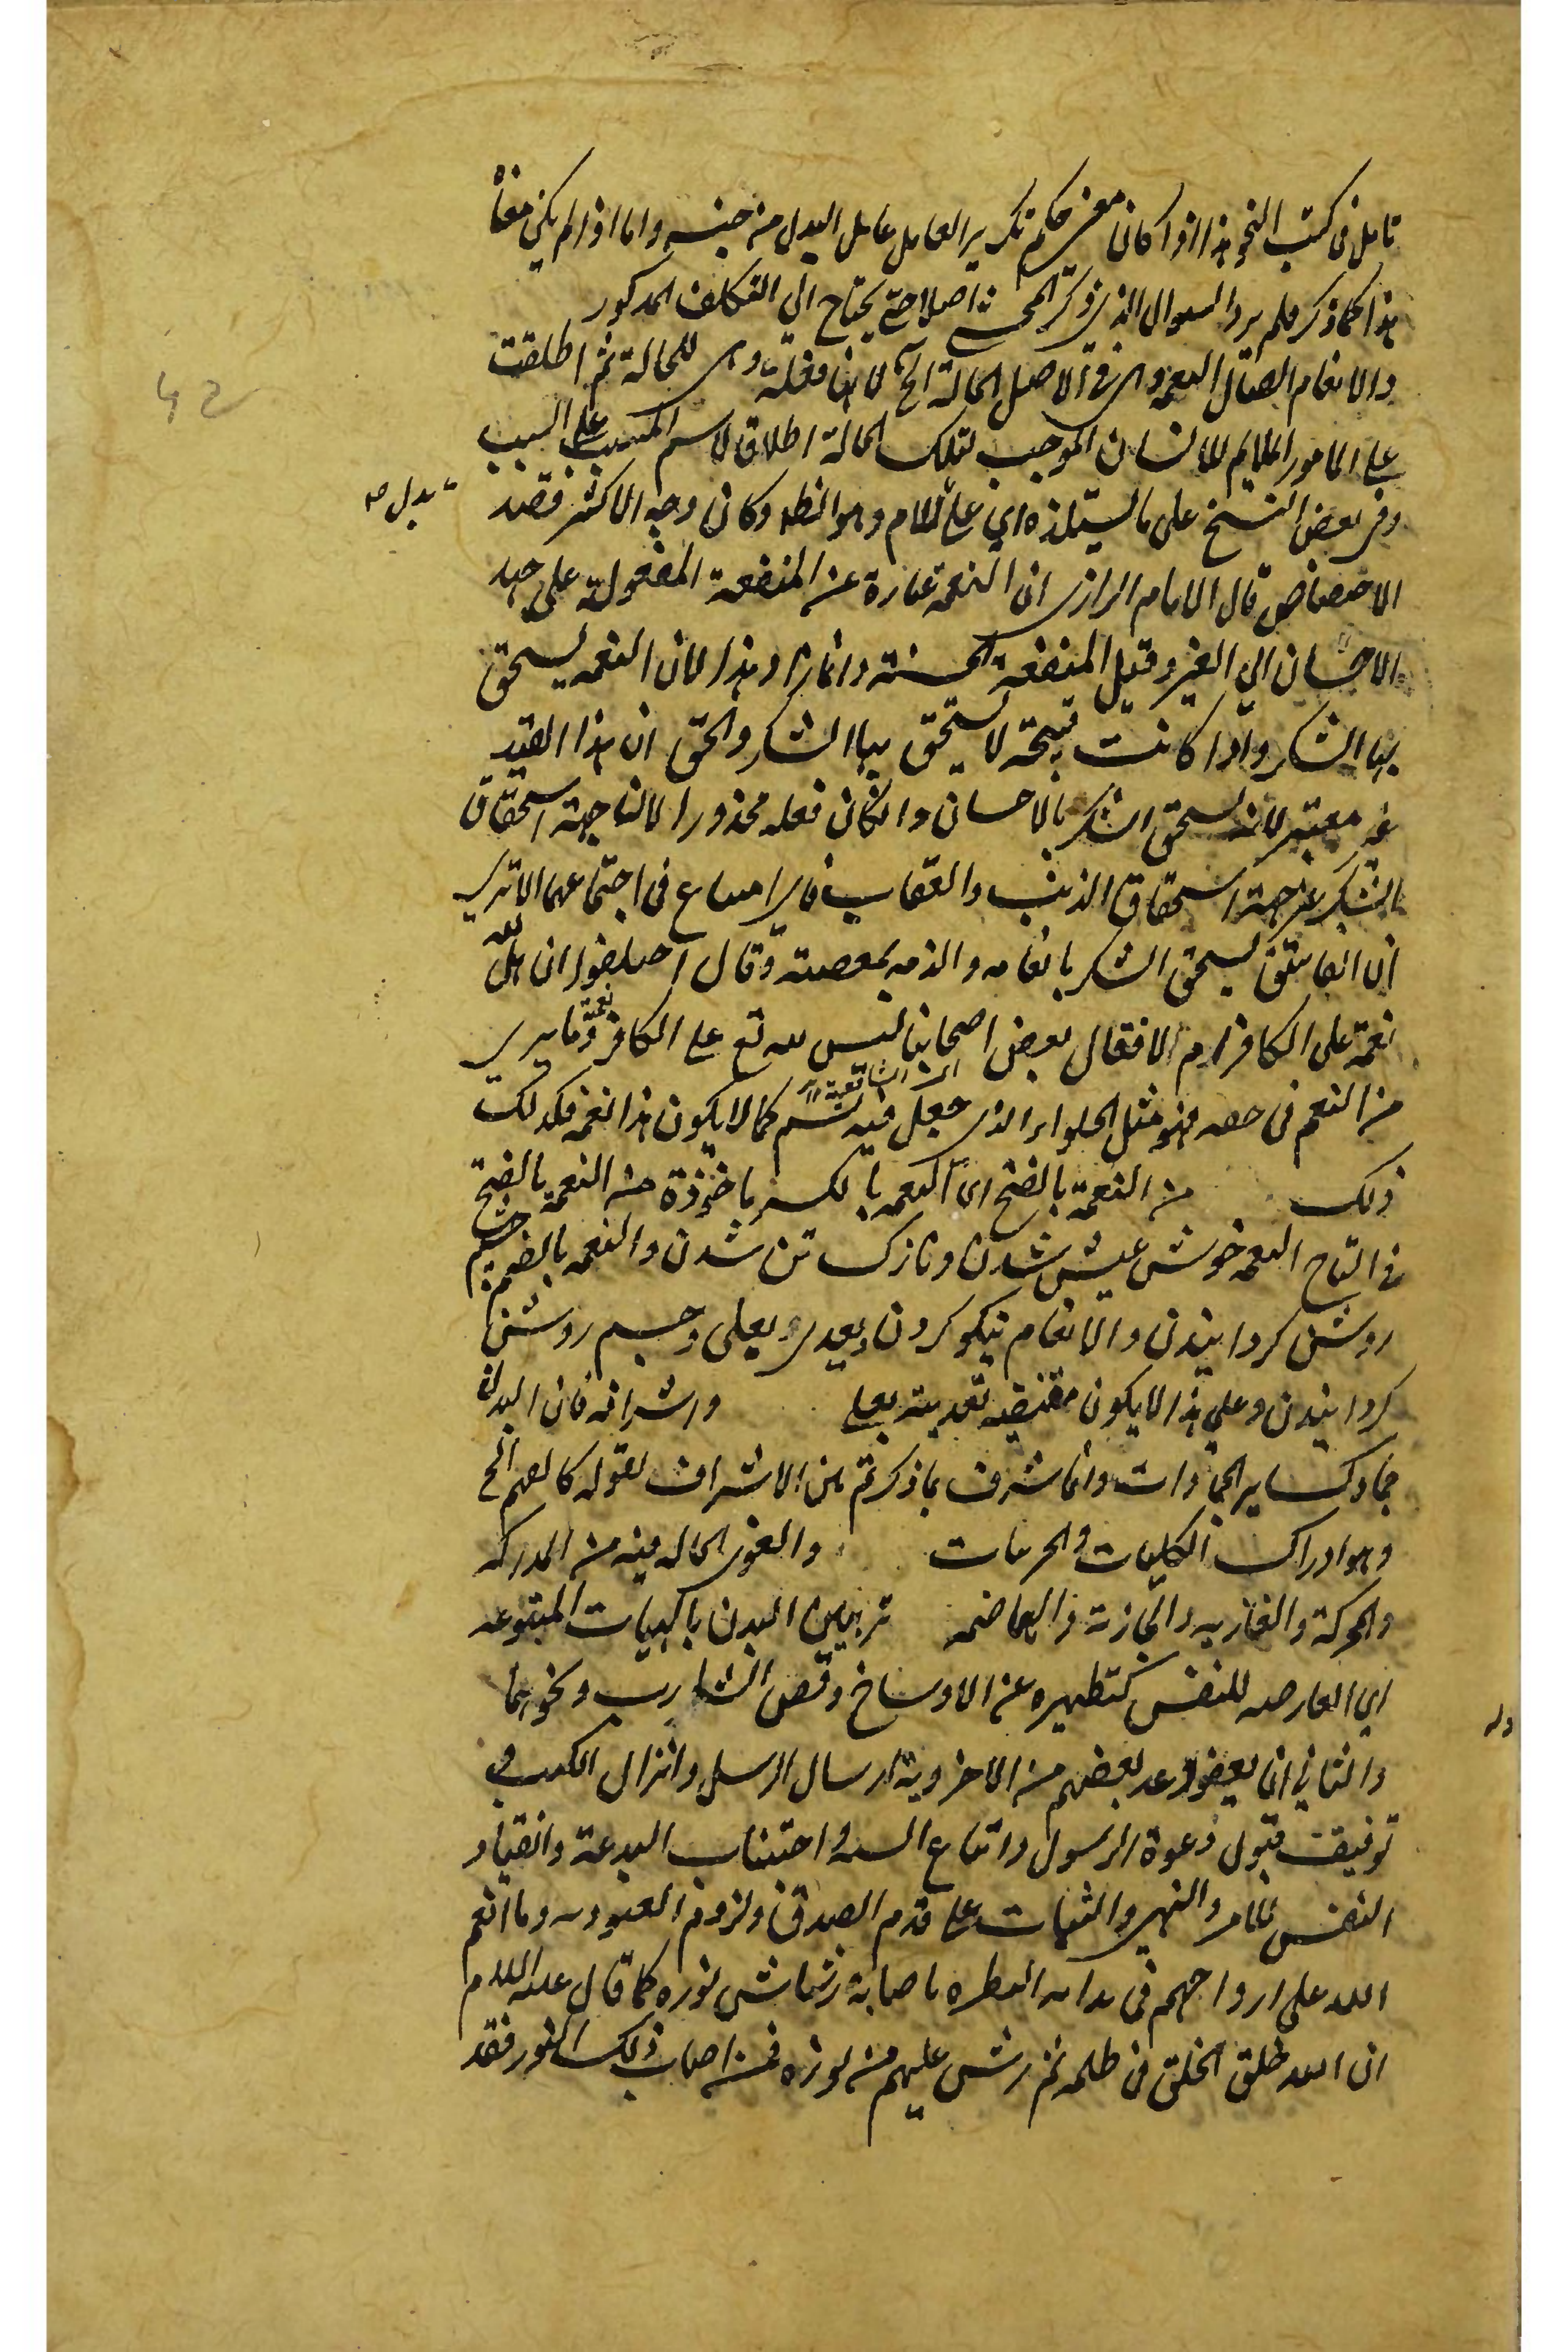 تامل فى كتب النحو هذا اذا كان معنى حكم تكرير العامل عامل البدل من جنسه واما اذا لم يكن معناه
هذا كما ذكر فلم يرد السوال الذى ذكر المحشى اصلا حتى يحتاج الى التكلف المذكور
والانعام ايصال النعمه وهى فى الاصل الحالة الخ لانها فعلة وهى للحالة ثم اطلقت
على الامور الملايم للانسان الموجب لتلك الحالة اطلاق لاسم المسبب على السبب
وفى بعض النسخ على ما يستلذه اى على اللام وهو الظه وكان وجه الاكثر قصد
بدل صه
الاختصاص قال الامام الرازى ان النعمة عبارة عن المنفعة المفعولة على جهد
الاحسان الى الغير وقيل المنفعة الحسنة وانما زاد هذا لان النعمه يستحق
بها الشكر واذا كانت قبيحة لا يستحق بها الشكر والحق ان هذا القيد
غير معتبر لانه يستحق الشكر بالاحسان وان كان فعله محذورا لان جهة استحقاق
الشكر غير جهة استحقاق الذنب والعقاب فاى امتناع فى اجتماعهما الا ترى
ان الفاسق يستحق الشكر بانعامه والذم بمعصيته وقال اختلفوا ان هل لله
نعمة على الكافر ام لا فقال بعض اصحابنا ليس لله تع على الكافر نعمة وما يرى
من النعم فى حقه فهو مثل الحلواء الذى جعل فيه السم كما لا يكون هذا نعمه فكذلك
ذلك من النعمة بالفتح اى النعمه بالكسر ماخوذة من النعمة بالفتح
فى التاج النعمه خوش عيش شدن ونازك تن شدن والنعمه بالضم چشم
روشن كردانيدن والانعام نيكو كردن ويعدى بعلى وچشم روشن
كردانيدن وعلى هذا لا يكون مقتضيه تعديته بعلى واشراقه فان البدن
جماد كساير الجمادات وانما شرف بما ذكر ثم من الاشراف لقوله كالفهم الخ
وهو ادراك الكليات والجزئيات والقوى الحاله فيه من المدركه
والمحركة والغاذيه والجاذبة والهاضمه تزيين البدن بالهيات المتنوعه
اى العارضه للنفس كتطهيره عن الاوساخ وقص الشارب ونحوهما
والثانى ان يعفو وعد بعضهم من الاخروية ارسال الرسل وانزال الكتب فى
توفيق قبول دعوة الرسول واتباع السنه واجتناب البدعة وانقياد
النفس للامر والنهى والثبات على قدم الصدق ولزوم العبوديه وما انعم
الله على ارواحهم فى بداية الفطره باصابة رشاش نوره كما قال عليه السلام
ان الله خلق الخلق فى ظلمه ثم رش عليهم من نوره فمن اصاب ذلك النور فقد